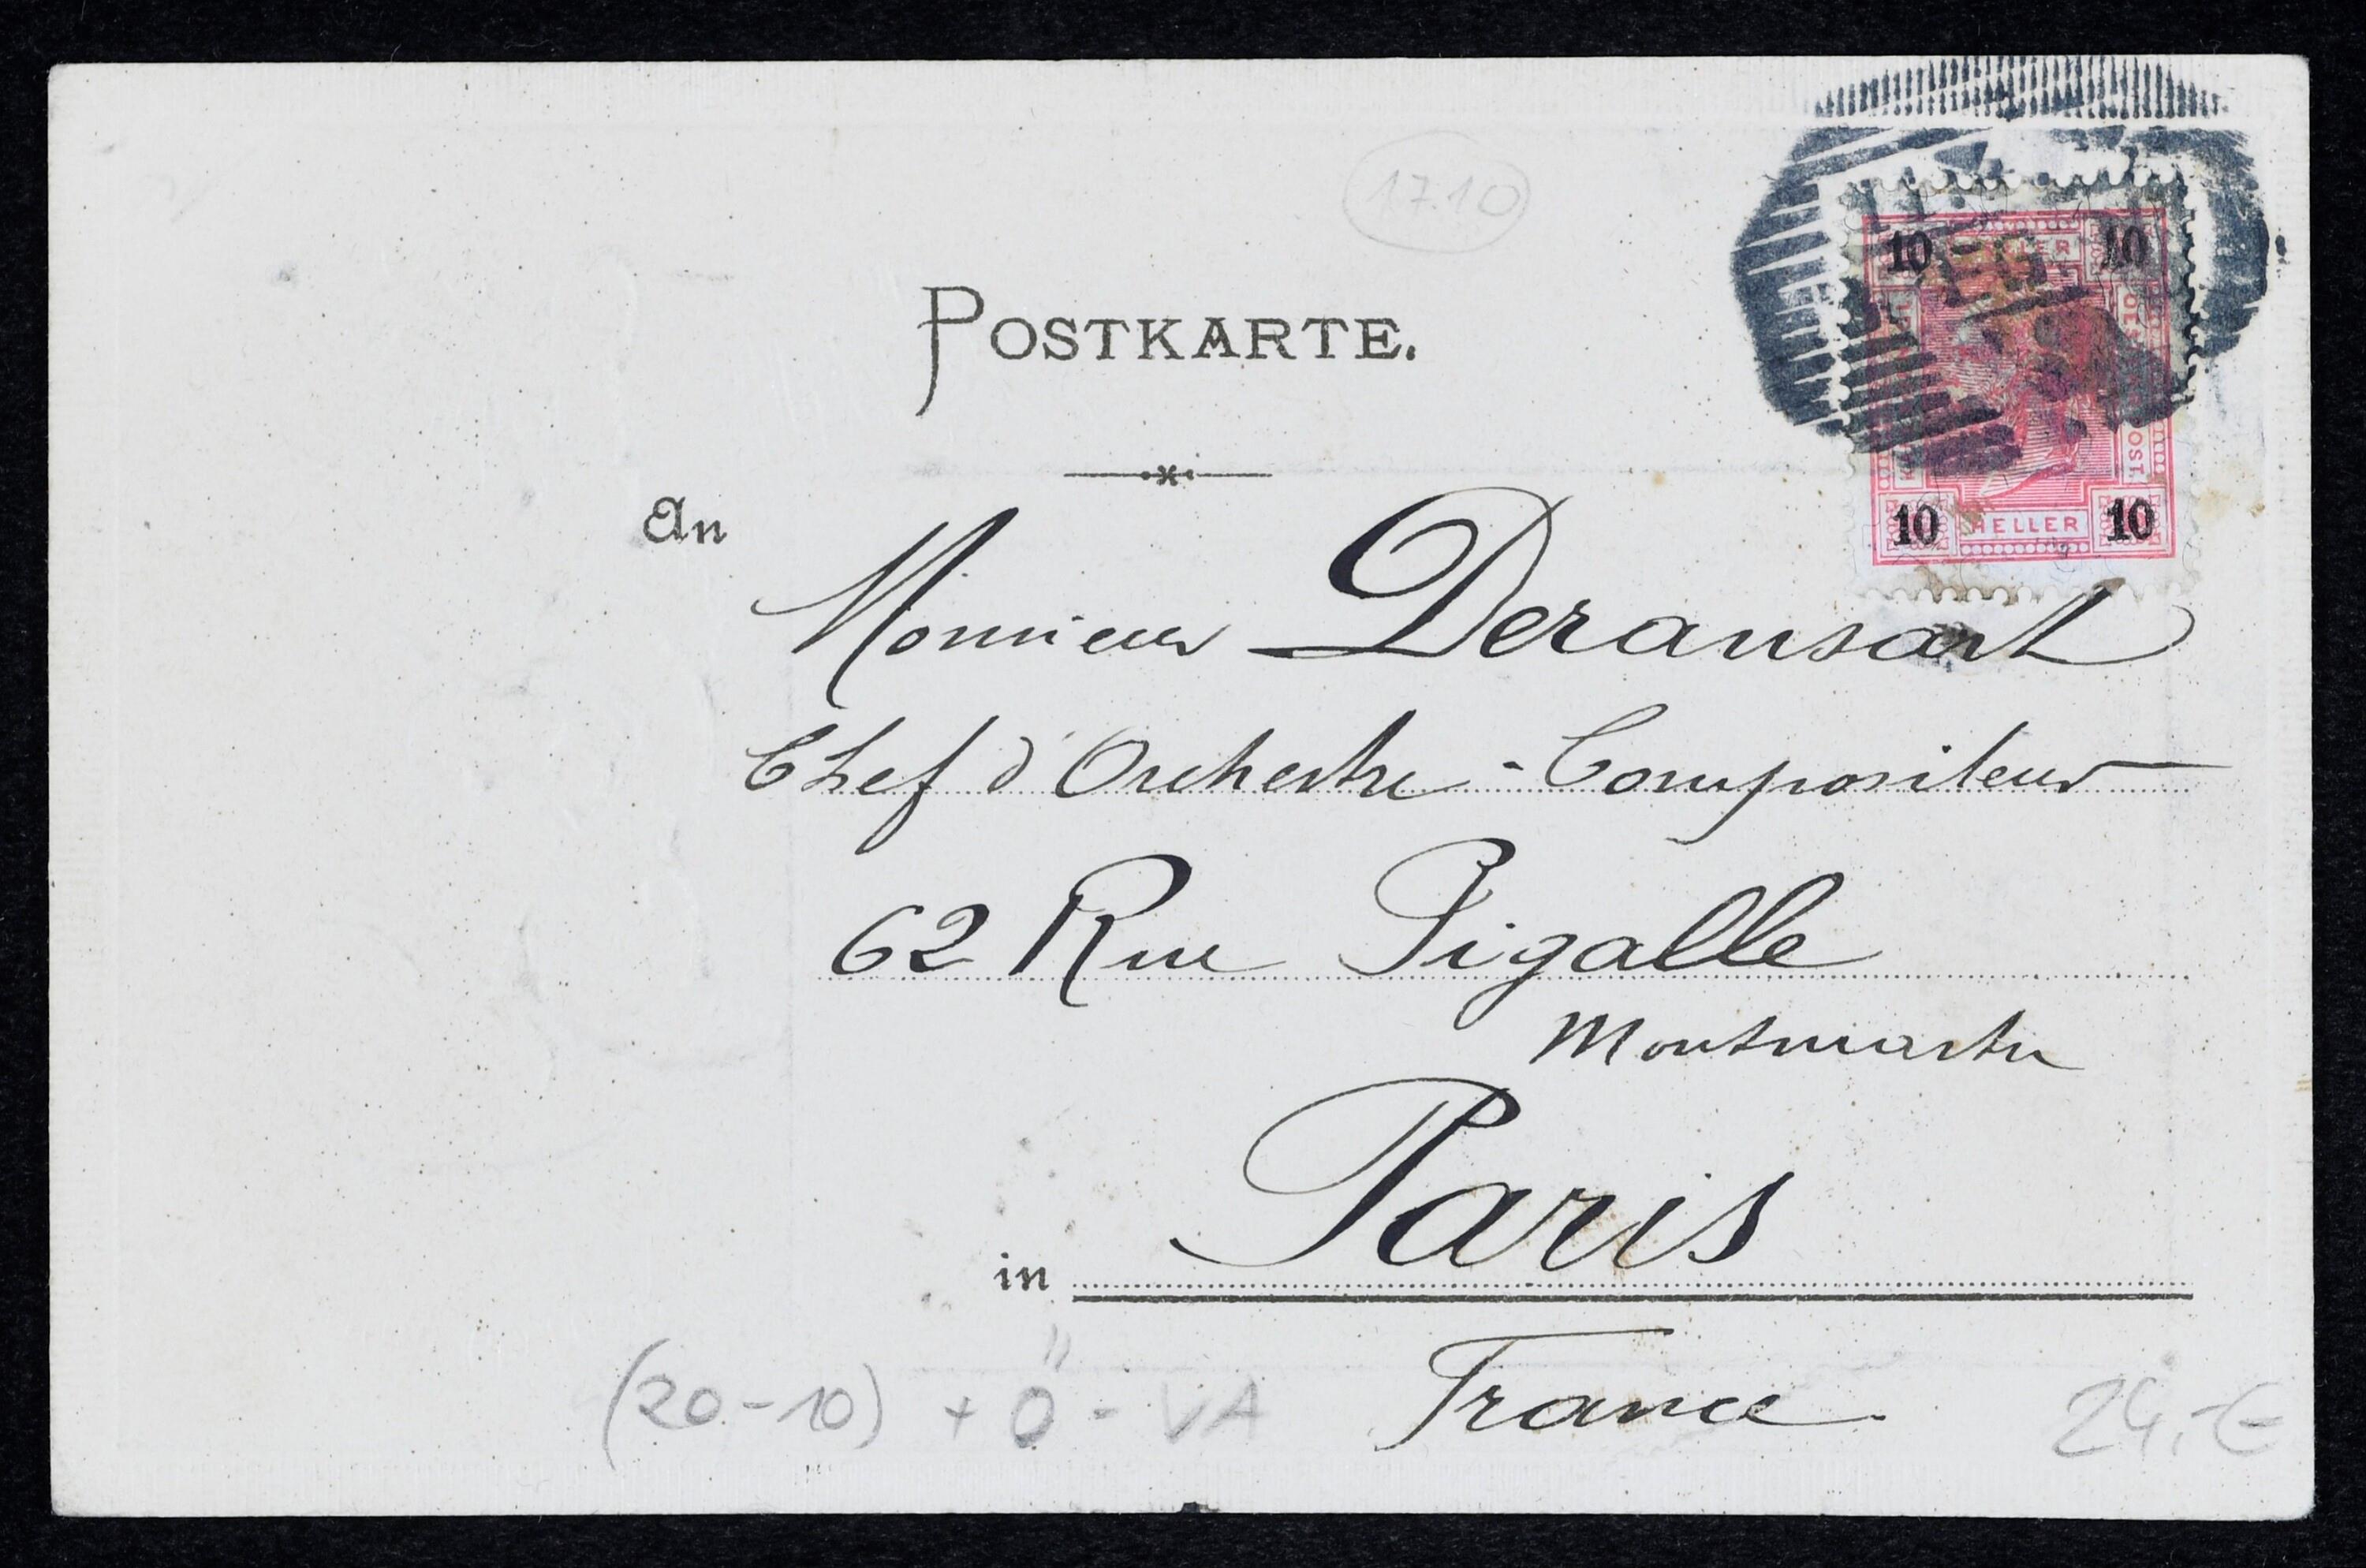 1710
POSTKARTE.
10 10
10 HELLER 10
An
Monsieur Deransart
Chef d'Orchestre - Compositeur
62 Rue Pigalle
Montmartre
in Paris
France
(20-10) + Ö - VA
24,-€